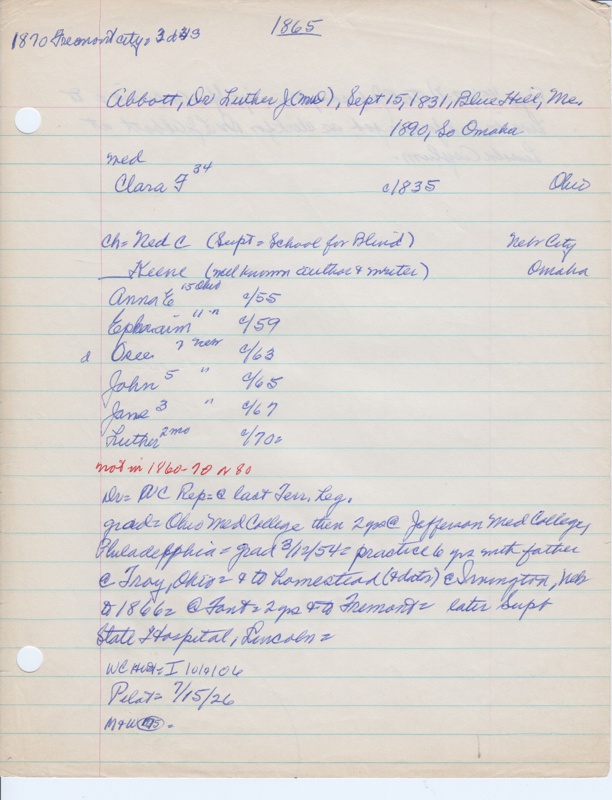 1865
1870 Fremont city = 3d 
Abbott, Dr Luther J (md), Sept 15, 1831, Blue Hill, Me.
1890, So Omaha
med
Clara F 34 c/1835 Ohio
ch = Ned C (Supt = School for Blind) Nebr City
Keene (well known author & writer) Omaha
Anna E 15 Ohio c/55
Ephraim 11 " c/59
d Osee 7 nebr c/63
John 5 " c/65
Jane 3 " c/67
Luther 2 mo c/70 =
not in 1860-70 or 80
Dr = WC Rep = @ last Terr. Leg.
grad = Ohio Med College then 2 yrs @ Jefferson Med College,
Philadelphia = grad 3/12/54 = practice 6 yrs with father
@ Troy, Ohio = & to homestead @ Irvington, Nebr
to 1866 = @ Font = 2 yrs & to Fremont = later Supt
State Hospital, Lincoln =
WC Hist = I
Pilot = 7/15/26
M&W